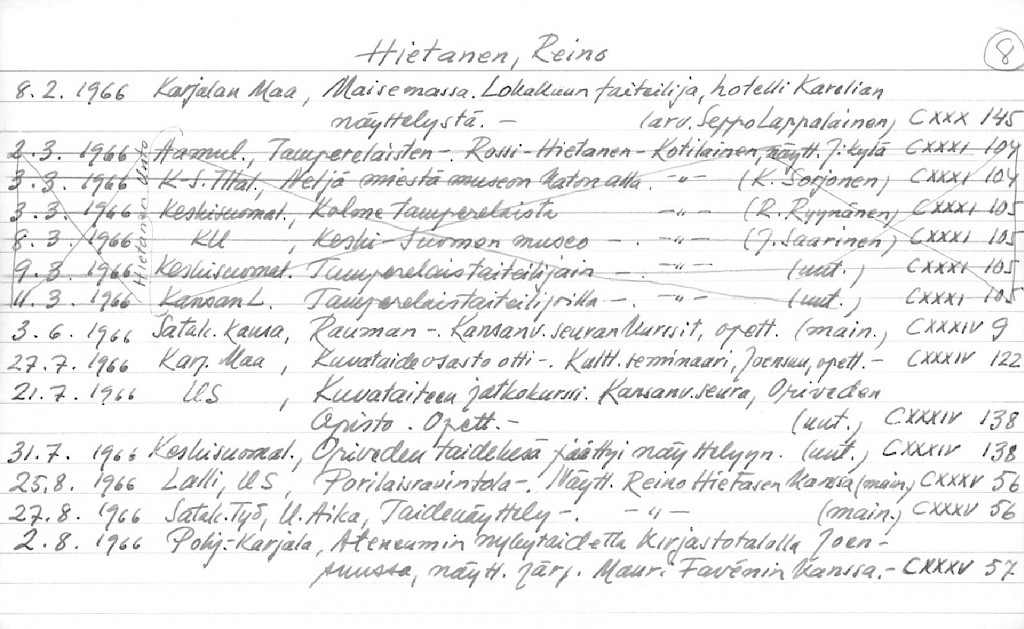 Hietanen, Reino
8
8.2.1966 Karjalan Maa, Maisemassa. Lokakuun taiteilija, hotelli Karelian
näyttelystä. – (arv. Seppo Lappalainen) CXXX 145
2.3. 1966 Aamul., Tamperelaisten –. Rossi-Hietanen-Kotilainen, näytt. J:kylä CXXXI 104
3.3. 1966 K-S. Iltal., Neljä miestä museon katon alla. –"– (K. Sorjonen) CXXXI 104
3.3. 1966 Keskisuomal., Kolme tamperelaista –"– (R. Ryynänen) CXXXI 105
8.3 1966 KU, Keski-Suomen museo –. –"– (J. Saarinen) CXXXI 105
9.3. 1966 Keskisuomal. Tamperelaistaiteilijain –. –"– (uut.) CXXXI 105
11.3. 1966 Kansan L. Tamperelaistaiteilijoilla –. –"– (uut.) CXXXI 105
Hietanen
3.6. 1966 Satak. Kansa, Rauman –. Kansanv.seuran kurssit, opett. (main.) CXXXIV 9
27.7. 1966 Karj. Maa, Kuvataideosasto otti –. Kultt.seminaari, Joensuu, opett. – CXXXIV 122
21.7. 1966 US, Kuvataiteen jatkokurssi. Kansanv.seura, Oriveden
Opisto. Opett. – (uut.) CXXXIV 138
31.7. 1966 Keskisuomal., Oriveden taidekesä päättyi näyttelyyn. (uut.) CXXXIV 138
25.8. 1966 Lalli, US, Porilaisravintola –. Näytt. Reino Hietasen kanssa (main.) CXXXV 56
27.8. 1966 Satak. Työ, U. Aika, Taidenäyttely –. –"– (main.) CXXXV 56
2.8. 1966 Pohj.-Karjala, Ateneumin nykytaidetta kirjastotalolla Joen-
suussa, näytt. järj. Mauri Favénin kanssa. – CXXXV 57